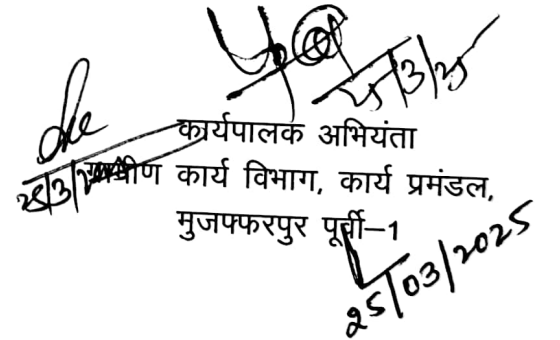 25/3/25
25/3/2025
कार्यपालक अभियंता
ग्रामीण कार्य विभाग, कार्य प्रमंडल,
मुजफ्फरपुर पूर्वी–1
25/03/2025